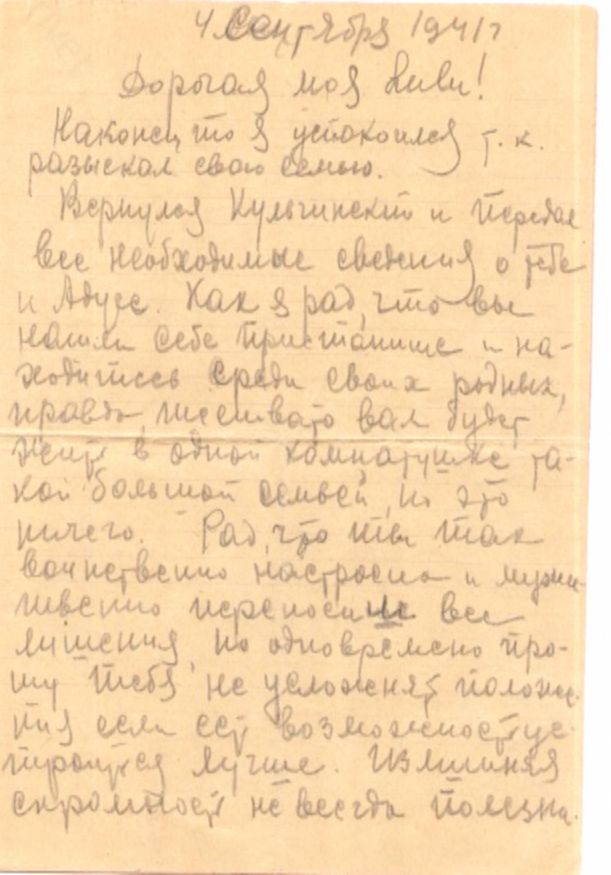 4 Сентября 1941 г
Дорогая моя Диви!
Наконец то я успокоился т. к.
разыскал свою семью.
Вернулся Кульчинский и передал
все необходимые сведения о тебе
и Адусе. Как я рад, что вы
нашли себе пристанище и на-
ходитесь среди своих родных,
правда, тесновато вам будет
жить в одной комнатушке та-
кой большой семьей, но это
ничего. Рад, что ты так
воинственно настроена и мужес-
твенно переносишь все
лишения, но одновремено про-
шу тебя не усложнять положе-
ния если есть возможность ус-
троится лучше. Излишняя
скромность не всегда полезна.